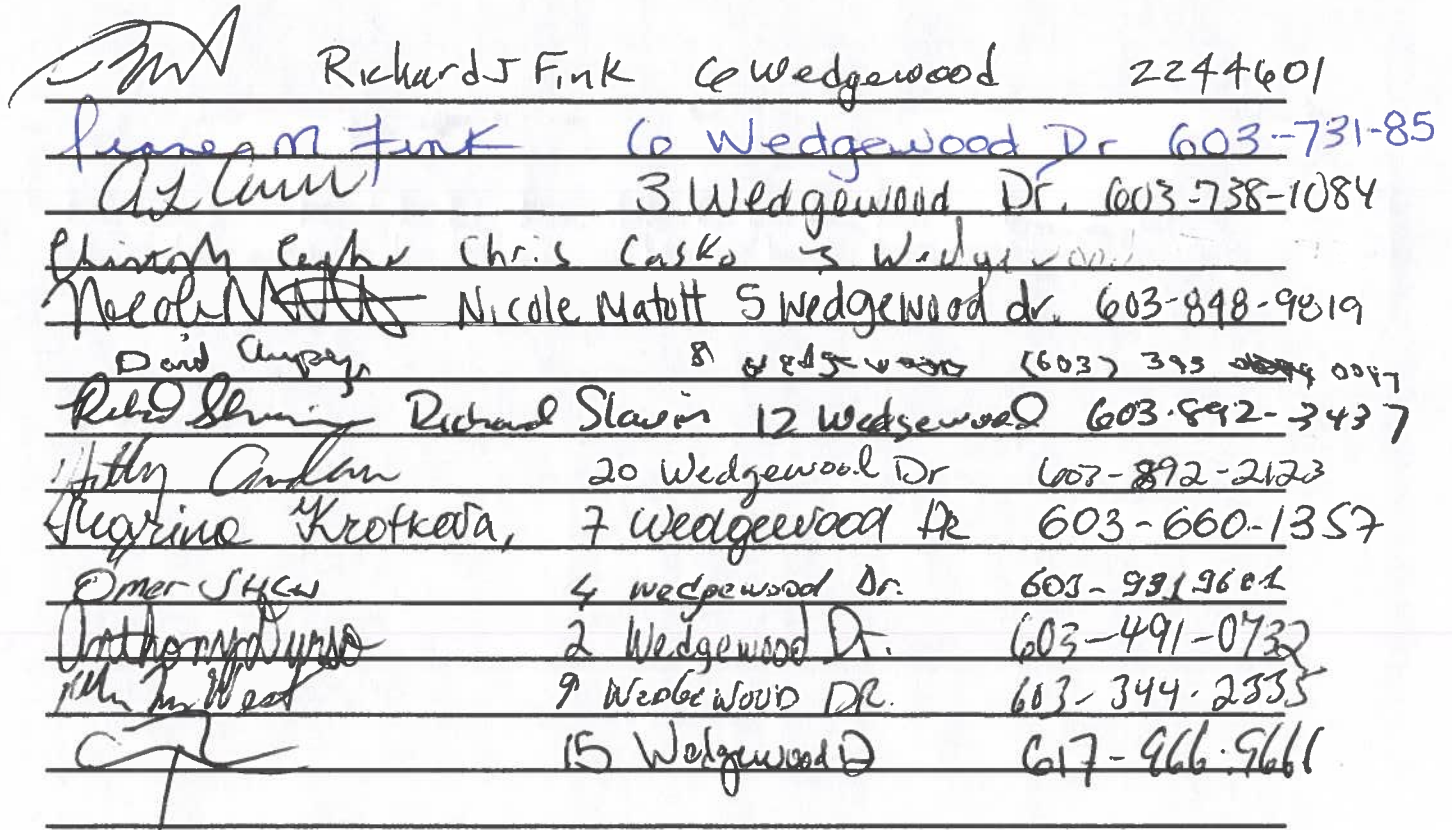 Richard J Fink 6 Wedgewood 2244601
M Fink 6 Wedgewood Dr 603-731-85
3 Wedgewood Dr. 603-738-1084
Chris Casko 3 Wedgewood
Nicole Matott 5 Wedgewood dr. 603-848-9819
David 8 Wedgewood (603) 395 0097
Richard Slavin 12 Wedgewood 603-892-3437
20 Wedgewood Dr 603-892-2123
Krotkova, 7 Wedgewood Dr 603-660-1357
Omer 4 wedgewood Dr. 603-
Anthony 2 Wedgewood Dr. 603-491-0732
West 9 WEDGEWOOD DR. 603-344-2335
15 Wedgewood D 617-966-9661